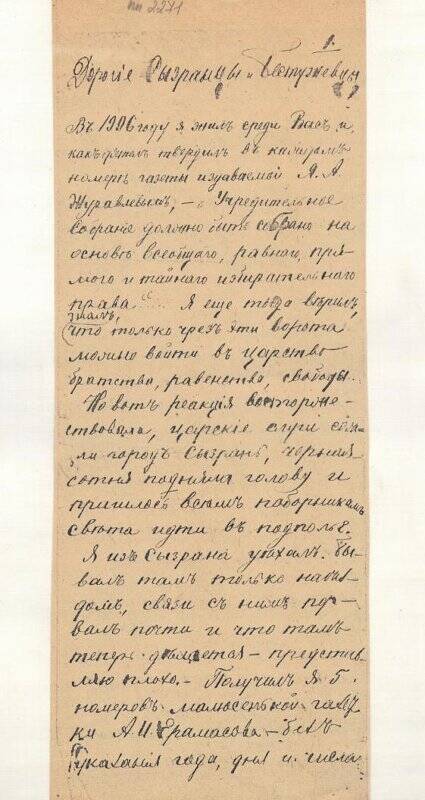 пп 2271
1.
Дорогіе Сызранцы и Бестужевцы!
Въ 1906 году я жилъ среди Васъ и,
какъ твердилъ въ каждомъ
номерѣ газеты издаваемой А. А.
Журавлевымъ, – „Учредительное
собраніе должно быть собрано на
основѣ всеобщаго, равнаго, пря-
мого и тайнаго избирательнаго
права“... Я еще тогда вѣрилъ,
зналъ,
что только чрезъ эти ворота
можно войти въ царство
братства, равенства, свободы...
Но вотъ реакція восторже-
ствовала, царскіе слуги
ли городъ Сызрань, черная
сотня подняла голову и
пришлось всѣмъ поборникамъ
свѣта идти въ подполье.
Я изъ Сызрана уѣхалъ. Бы-
валъ тамъ только наѣз-
домъ, связи съ нимъ пор-
валъ почти и что тамъ
теперь дѣлается – представ-
ляю плохо. – Получилъ я 5
номеровъ малюсенькой газет-
ки А. И. Ерамасова – безъ
указанія года, дня и числа